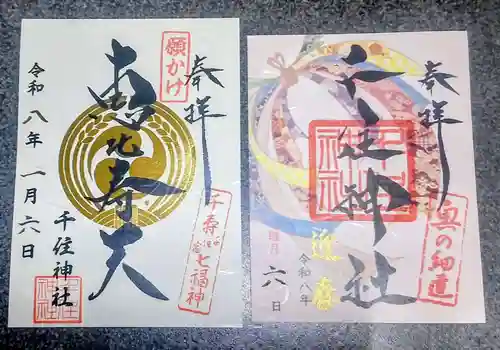 奉拝
願かけ
恵比寿天
千寿
七福神
令和八年一月六日
千住神社
奉拝
千住神社
奥の細道
迎春
令和八年
睦月
六日